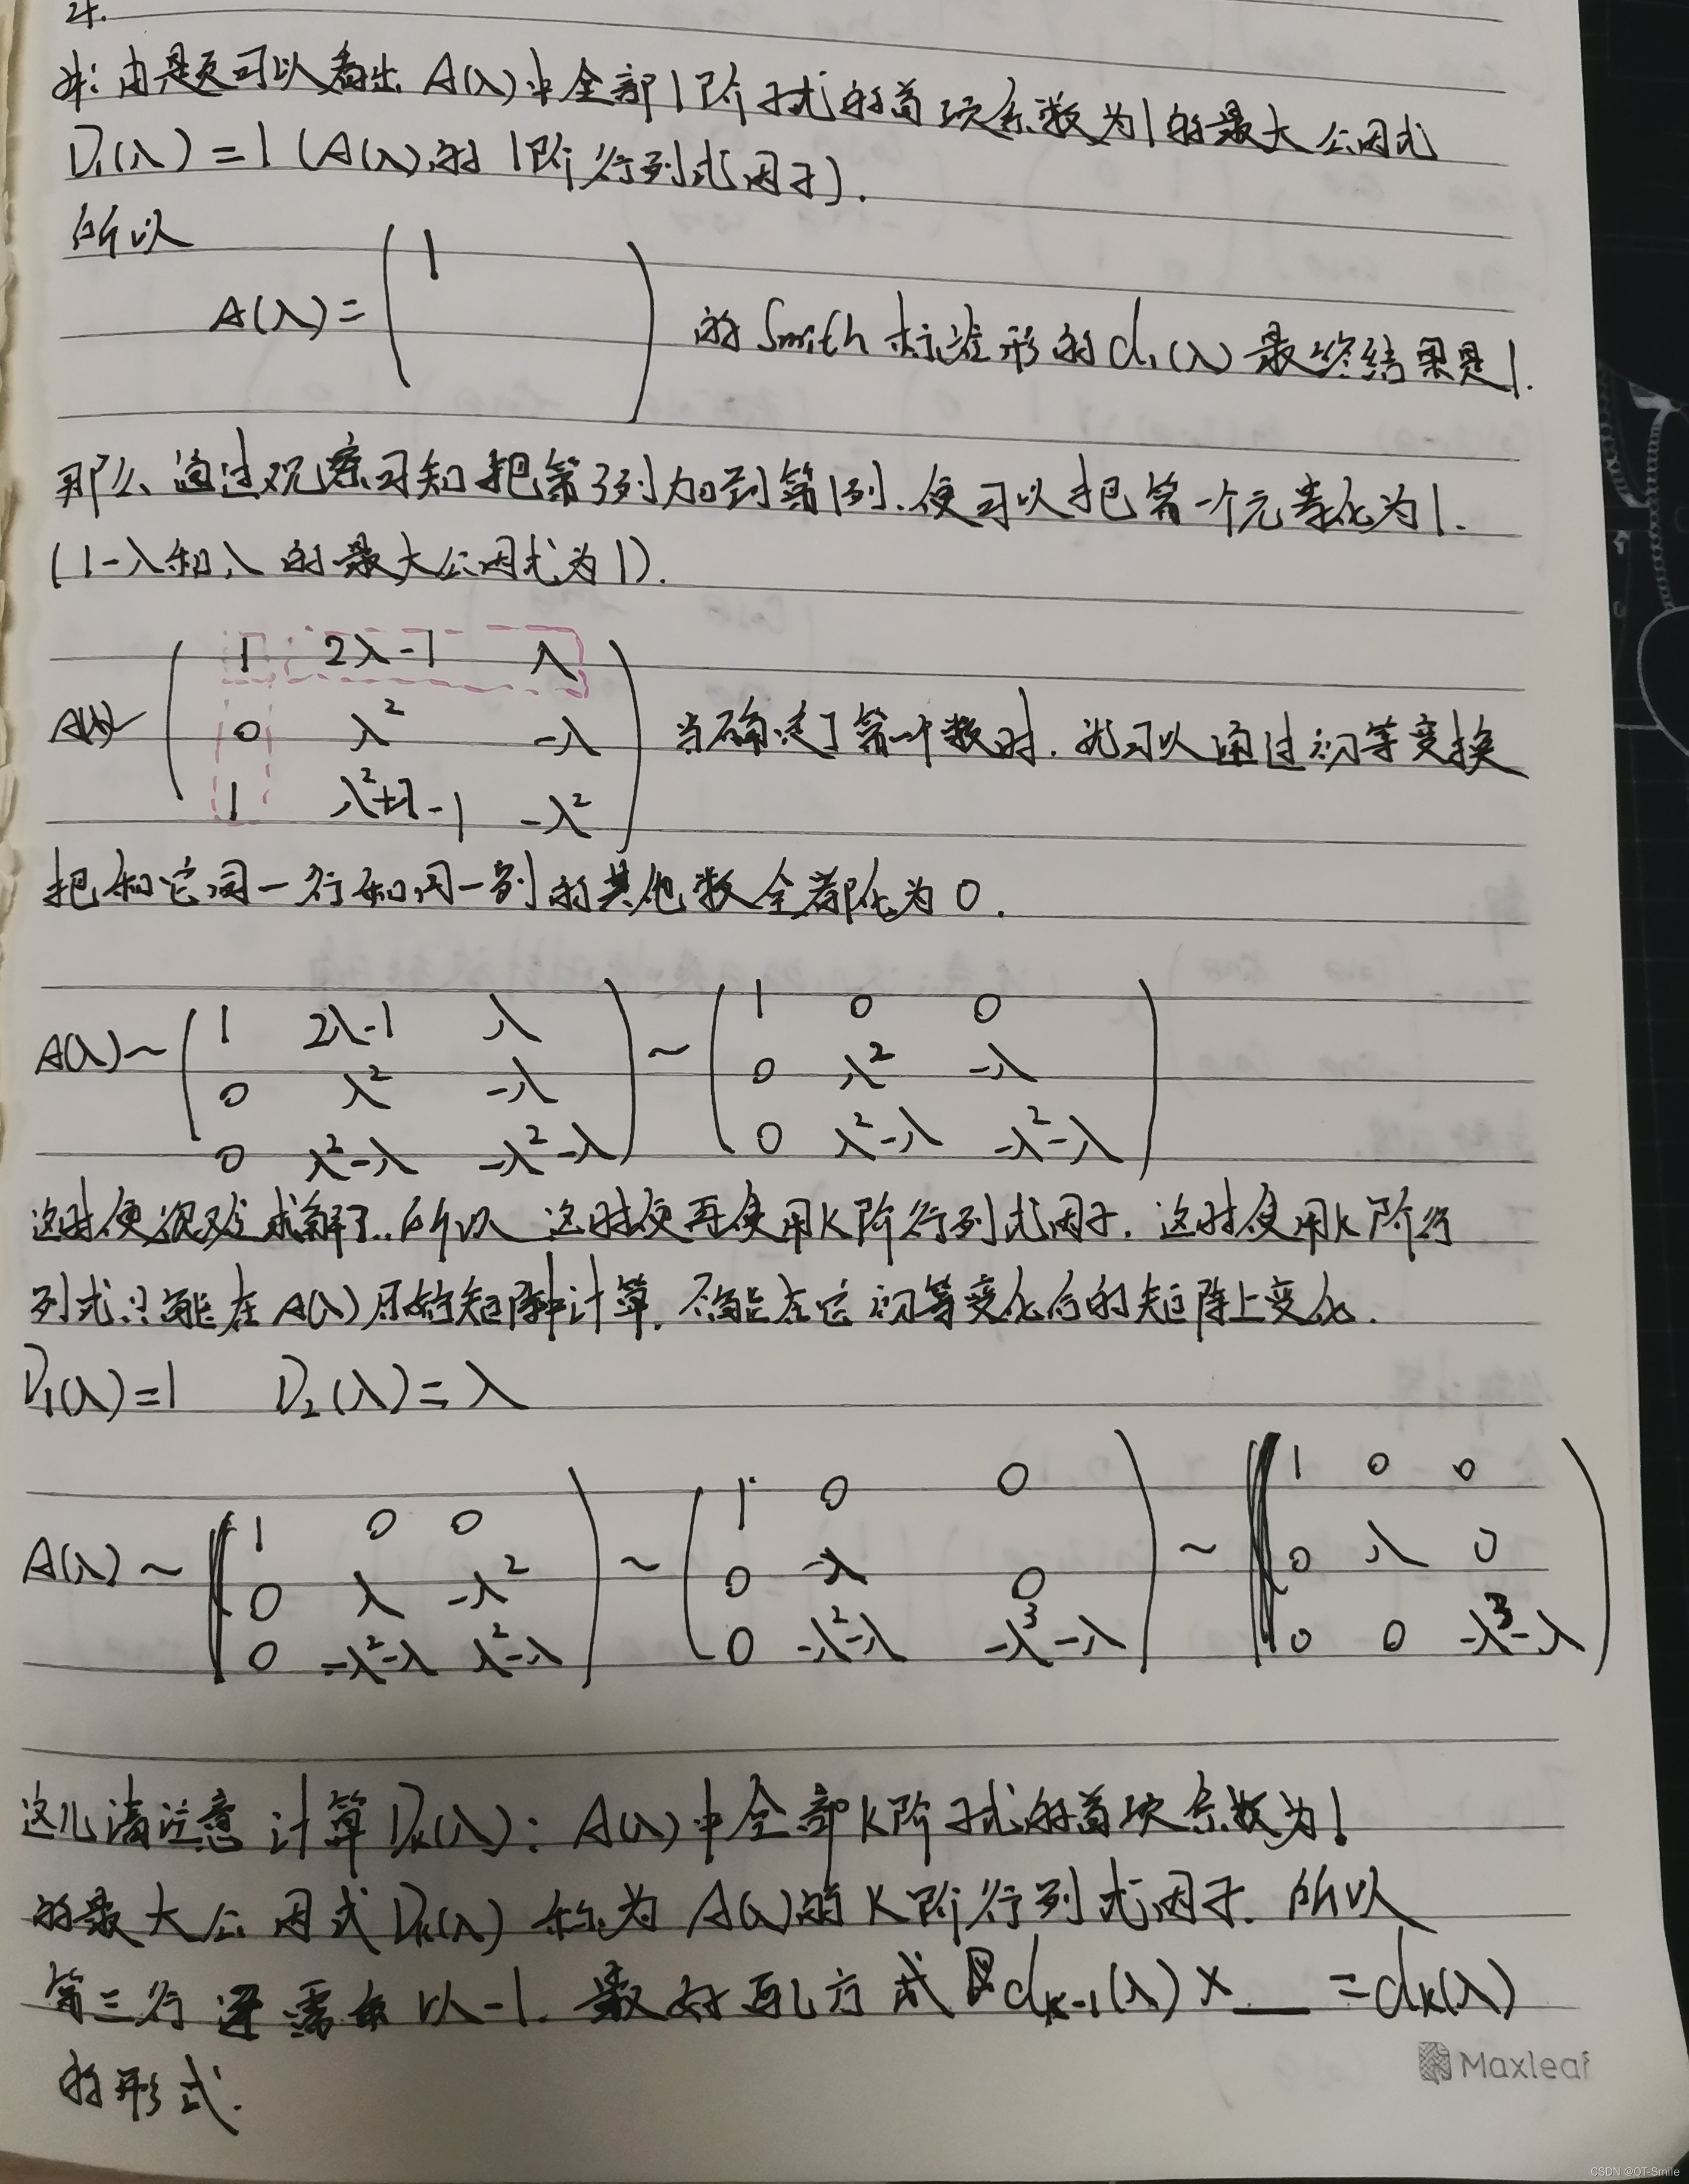 4.
解:由题可以看出 A(λ)中全部1阶子式的首项系数为1的最大公因式
D₁(λ)=1 (A(λ)的1阶行列式因子).
所以
A(λ)= ( 1 ) 的Smith标准形的d₁(λ)最终结果是1.
那么通过观察可知把第3列加到第1列.便可以把第一个元素化为1.
(1-λ和λ的最大公因式为1).
1 2λ-1 λ
A(λ)~ 0 λ² -λ 当确定了第一个数时.就可以通过初等变换
1 λ²+λ-1 -λ²
把和它同一行和同一列的其他数全都化为0.
A(λ)~ ( 1 2λ-1 λ ; 0 λ² -λ ; 0 λ²-λ -λ²-λ ) ~ ( 1 0 0 ; 0 λ² -λ ; 0 λ²-λ -λ²-λ )
这时便很难求解了.所以 这时便再使用K阶行列式因子.这时使用k阶行
列式只能在A(λ)原始矩阵中计算.不能在它初等变化后的矩阵上变化.
D₁(λ)=1 D₂(λ)=λ
A(λ)~ ( 1 0 0 ; 0 λ -λ² ; 0 -λ²-λ λ²-λ ) ~ ( 1 0 0 ; 0 -λ 0 ; 0 -λ²-λ -λ³-λ ) ~ ( 1 0 0 ; 0 λ 0 ; 0 0 -λ³-λ )
这儿请注意 计算Dₖ(λ): A(λ)中全部K阶子式的首项系数为1
的最大公因式Dₖ(λ)称为A(λ)的K阶行列式因子.所以
第三行还需乘以-1.最好配方成dₖ₋₁(λ)×__=dₖ(λ)
的形式.
Maxleaf
CSDN @QT-Smile